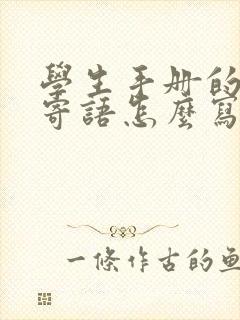 學生手册的
寄語怎麼寫
一條作古的魚